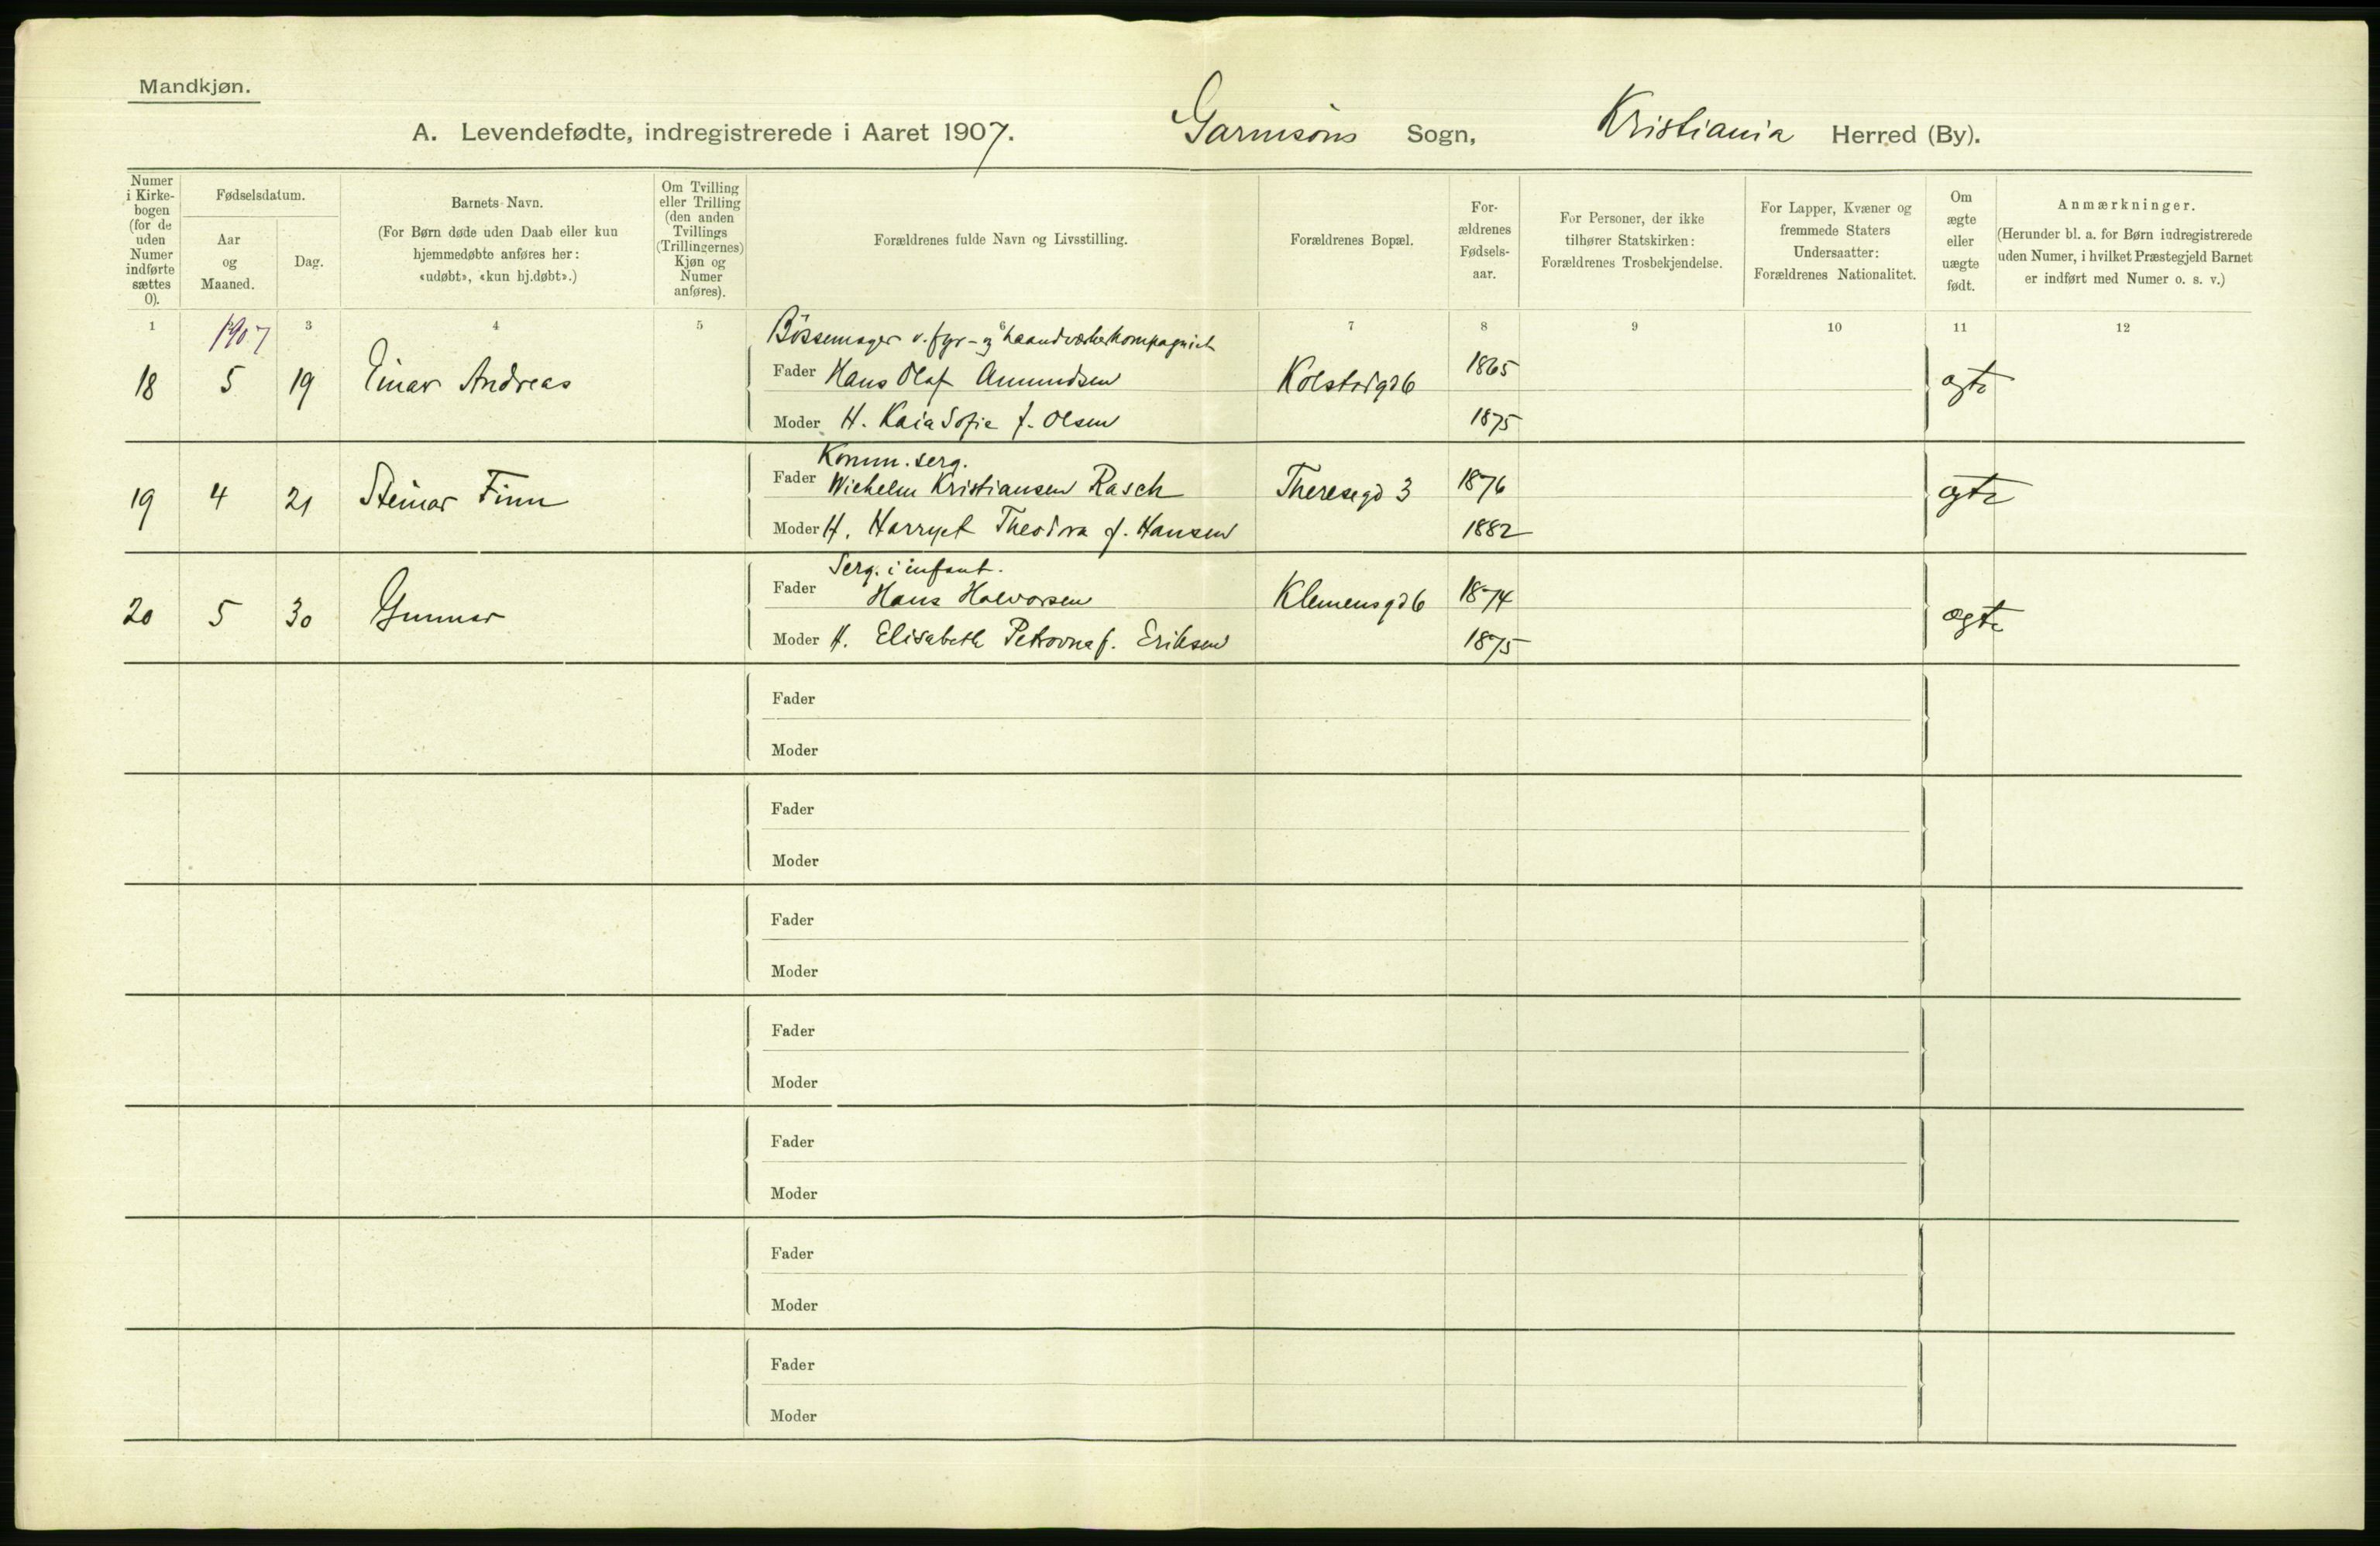 Mandkjøn.
A. Levendefødte, indregistrerede i Aaret 1907. Garnisons Sogn, Kristiania Herred (By).
Numer i Kirke-bogen (for de uden Numer indførte sættes 0).
Fødselsdatum.
Aar og Maaned.
Dag.
Barnets Navn.
(For Børn døde uden Daab eller kun hjemmedøbte anføres her: «udøbt», «kun hj.døbt».)
Om Tvilling eller Trilling (den anden Tvillings (Trillingernes) Kjøn og Numer anføres).
Forældrenes fulde Navn og Livsstilling.
Forældrenes Bopæl.
For-ældrenes Fødsels-aar.
For Personer, der ikke tilhører Statskirken: Forældrenes Trosbekjendelse.
For Lapper, Kvæner og fremmede Staters Undersaatter: Forældrenes Nationalitet.
Om ægte eller uægte født.
Anmærkninger.
(Herunder bl. a. for Børn indregistrerede uden Numer, i hvilket Præstegjeld Barnet er indført med Numer o. s. v.)
1 3 4 5 6 7 8 9 10 11 12
1907
Bössemager v. fyr- og haandværkerkompagniet
18 5 19 Einar Andreas Fader Hans Olaf Amundsen Kolstadgd 6 1865 ægte
Moder H. Kaia Sofie f. Olsen 1875
Komm. serg.
19 4 21 Steinar Finn Fader Wilhelm Kristiansen Rasch Theresegd 3 1876 ægte
Moder H. Harryet Theodora f. Hansen 1882
Serg. i infant.
20 5 30 Gunnar Fader Hans Halvorsen Klemensgd 6 1874 ægte
Moder H. Elisabeth Petrovna f. Eriksen 1875
Fader
Moder
Fader
Moder
Fader
Moder
Fader
Moder
Fader
Moder
Fader
Moder
Fader
Moder